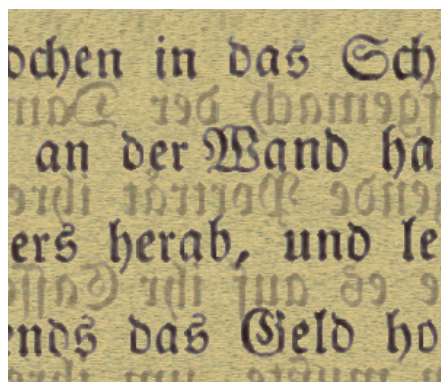 ochen in das Sch
an der Wand ha
ers herab, und le
ends das Geld ho